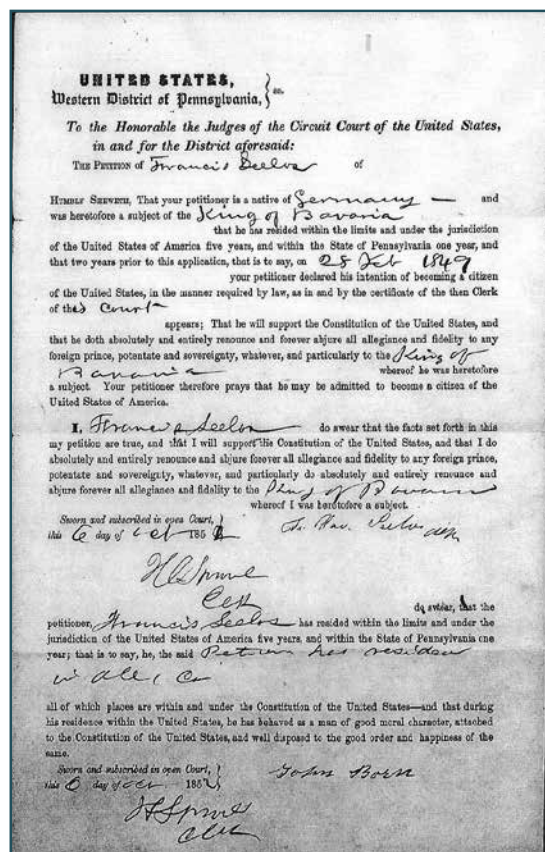 UNITED STATES,
Western District of Pennsylvania, } ss.
To the Honorable the Judges of the Circuit Court of the United States,
in and for the District aforesaid:
THE PETITION OF Francis Seelos of
HUMBLY SHEWETH, That your petitioner is a native of Germany — and
was heretofore a subject of the King of Bavaria
that he has resided within the limits and under the jurisdiction
of the United States of America five years, and within the State of Pennsylvania one year, and
that two years prior to this application, that is to say, on 28 Feb 1849
your petitioner declared his intention of becoming a citizen
of the United States, in the manner required by law, as in and by the certificate of the then Clerk
of this Court
appears; That he will support the Constitution of the United States, and
that he doth absolutely and entirely renounce and forever abjure all allegiance and fidelity to any
foreign prince, potentate and sovereignty, whatever, and particularly to the King of
Bavaria whereof he was heretofore
a subject. Your petitioner therefore prays that he may be admitted to become a citizen of the
United States of America.
I, Francis Seelos do swear that the facts set forth in this
my petition are true, and that I will support the Constitution of the United States, and that I do
absolutely and entirely renounce and abjure forever all allegiance and fidelity to any foreign prince,
potentate and sovereignty, whatever, and particularly do absolutely and entirely renounce and
abjure forever all allegiance and fidelity to the King of Bavaria
whereof I was heretofore a subject.
Sworn and subscribed in open Court, } Fr. Xav. Seelos
this 6 day of Oct 185
do swear, that the
petitioner, Francis Seelos has resided within the limits and under the
jurisdiction of the United States of America five years, and within the State of Pennsylvania one
year; that is to say, he, the said has resided
in
all of which places are within and under the Constitution of the United States—and that during
his residence within the United States, he has behaved as a man of good moral character, attached
to the Constitution of the United States, and well disposed to the good order and happiness of the
same.
Sworn and subscribed in open Court, } John Born
this 6 day of Oct 185